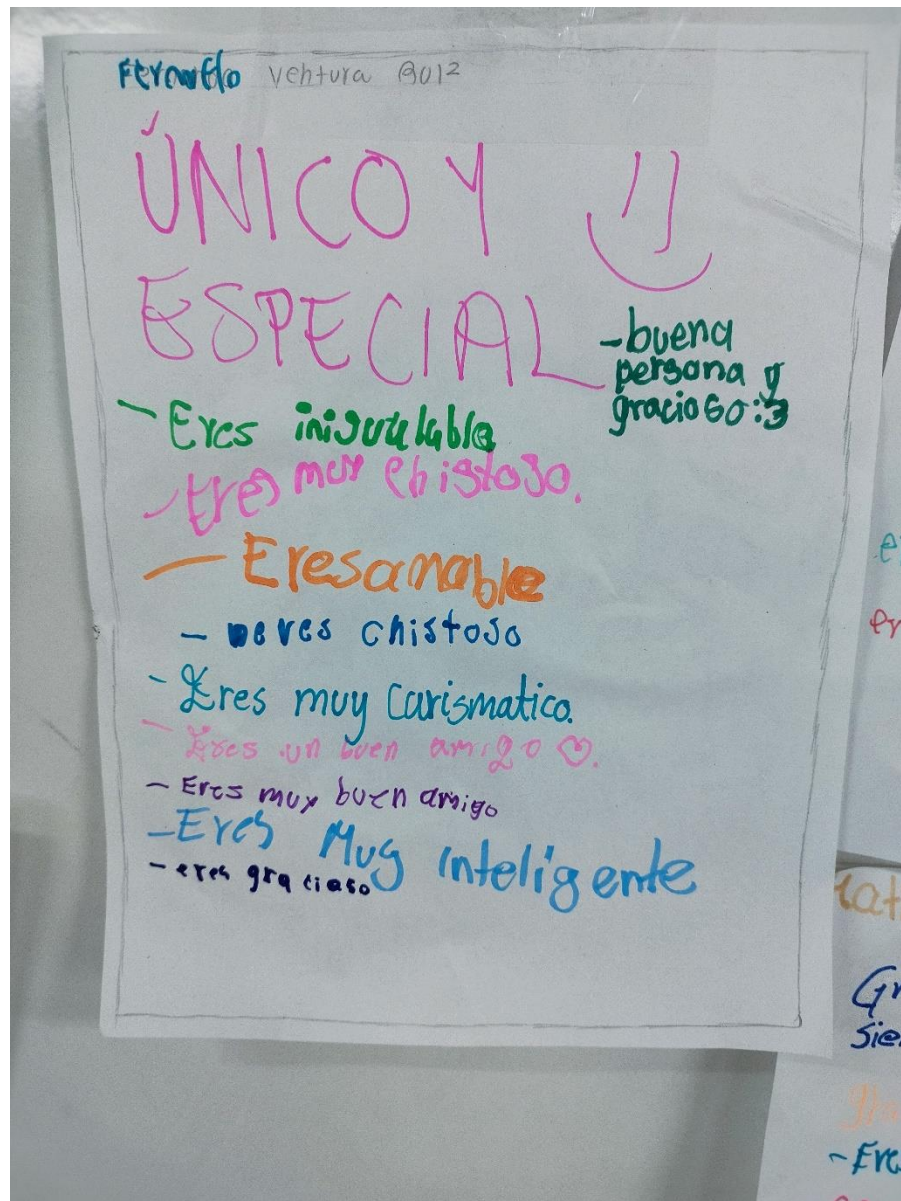 ventura
ÚNICO Y
ESPECIAL
-buena
persona y
gracioso:3
- Eres inigualable
- Eres muy chistoso.
- Eres amable
- eres chistoso
- Eres muy Carismatico.
- Eres un buen amigo ♡.
- Eres muy buen amigo
- Eres Muy inteligente
- eres gracioso
Gr
sie
- Ere